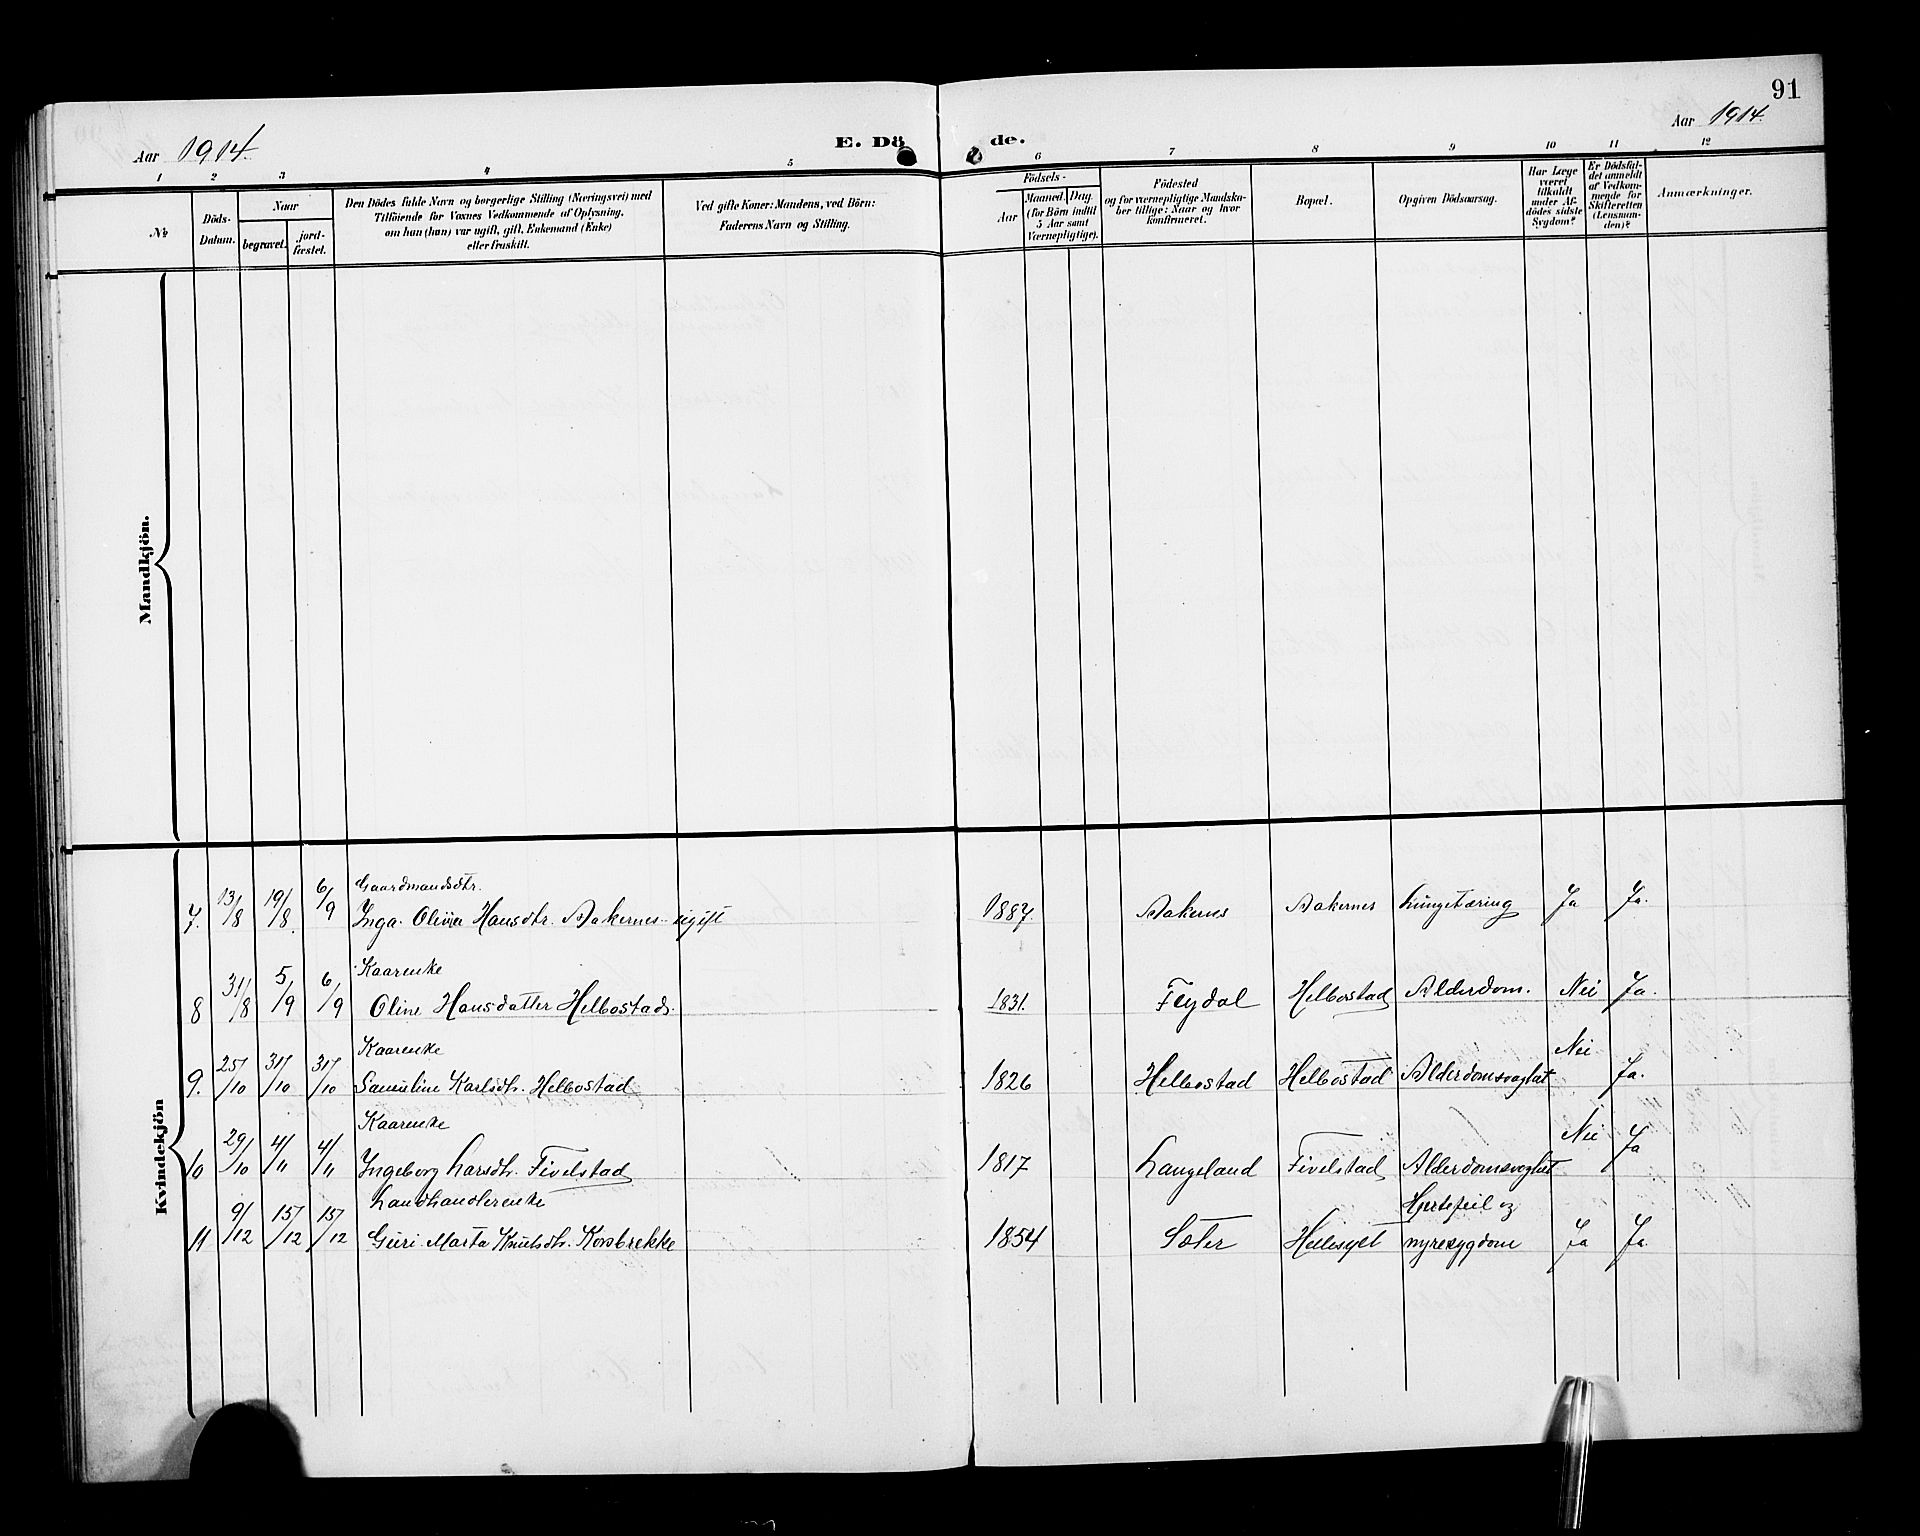 91
Aar 1914. E. Dö de. Aar 1914.
1 2 3 4 5 6 7 8 9 10 11 12
№
Döds-
Datum.
Naar
begravet.
jord-
fæstet.
Den Dödes fulde Navn og borgerlige Stilling (Næringsvei) med
Tilföiende for Voxnes Vedkommende af Oplysning,
om han (hun) var ugift, gift, Enkemand (Enke)
eller fraskilt.
Ved gifte Koner: Mandens, ved Börn:
Faderens Navn og Stilling.
Födsels-
Aar
Maaned. Dag.
(for Börn indtil
5 Aar samt
Værnepligtige).
Födested
og for værnepligtige Mandska-
ber tillige: Naar og hvor
konfirmeret.
Bopæl.
Opgiven Dödsaarsag.
Har Læge
været
tilkaldt
under Af-
dödes sidste
Sygdom?
Er Dödsfal-
det anmeldt
af Vedkom-
mende for
Skifteretten
(Lensman-
den)?
Anmærkninger.
Mandkjön.
Kvindekjön
Gaardmandsdtr.
7. 13/8 19/8. 6/9 Inga Olivia Hansdtr. Aakernes ugift 1887. Aakernes Aakernes Lungetæring Ja Ja.
Kaarenke
8 31/8 5/9 6/9 Oline Hansdatter Helbostad. 1831. Flydal Helbostad Alderdom. Nei Ja.
Kaarenke
9. 25/10 31/10 31/10 Samuline Karlsdtr. Helbostad 1826 Helbostad Helbostad Alderdomsvaghet Nei Ja.
Kaarenke
10 29/10 4/11 4/11 Ingeborg Larsdtr. Fivelstad 1817 Langeland Fivelstad Alderdomsvaghet Nei Ja
Landhandlerenke Hjertefeil og
11 9/12 15/12 15/12 Guri Marta Knutsdtr. Korsbrekke 1854 Sæter Hellesylt nyresygdom Ja Ja.